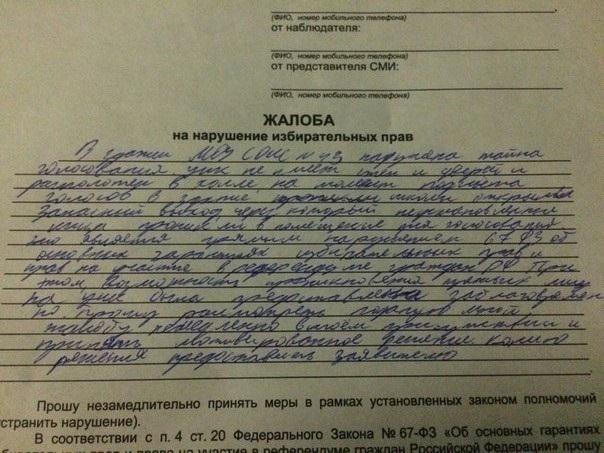 (ФИО, номер мобильного телефона)
от наблюдателя:
(ФИО, номер мобильного телефона)
от представителя СМИ:
(ФИО, номер мобильного телефона)
ЖАЛОБА
на нарушение избирательных прав
В здании МБУ СОШ № 43 нарушена тайна
голосования УИК не имеет стен и дверей и
расположен в холле, на момент подсчета
голосов в здание школы открыт
запасный выход через который
лица проникли в помещение для голосования
что является прямым нарушением 67 ФЗ об
основных гарантиях избирательных прав и
прав на участие в референдуме граждан РФ При
этом, возможность проникновения лиц
на УИК была предоставлена заблаговремен
но прошу рассмотреть
жалобу немедленно в моем присутствии и
принять мотивированное решение. копию
решения предоставить заявителю
Прошу незамедлительно принять меры в рамках установленных законом полномочий
устранить нарушение).
В соответствии с п. 4 ст. 20 Федерального Закона № 67-ФЗ «Об основных гарантиях
прав и права на участие в референдуме граждан Российской Федерации» прошу